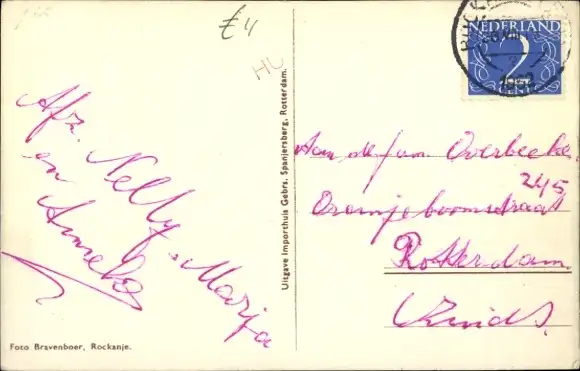 £4
HU
NEDERLAND
2
CENT
1952
Afz. Nelly, Marja
en Anneke
Aan de fam. Overbeeke.
245
Oranjeboomstraat
Rotterdam.
(Zuid).
Uitgave Importhuis Gebrs. Spanjersberg, Rotterdam.
Foto Bravenboer, Rockanje.